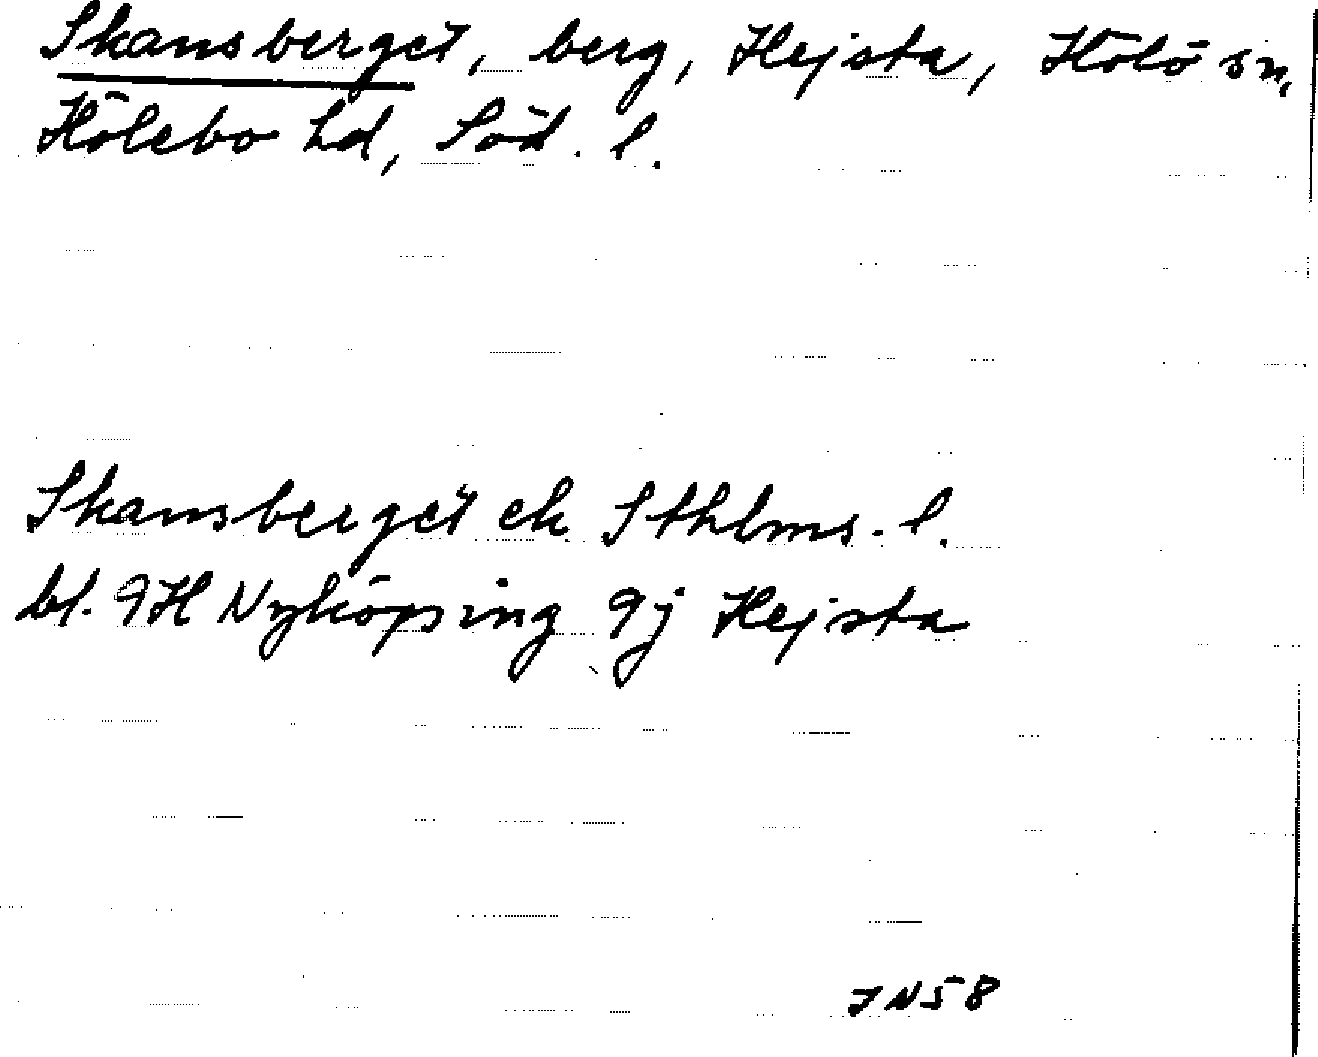 Skansberget, berg, Hejsta, Hölö sn,
Hölebo hd, Söd. l.
Skansberget ek Sthlms. l.
bl. 9H Nyköping 9j Hejsta
JN58